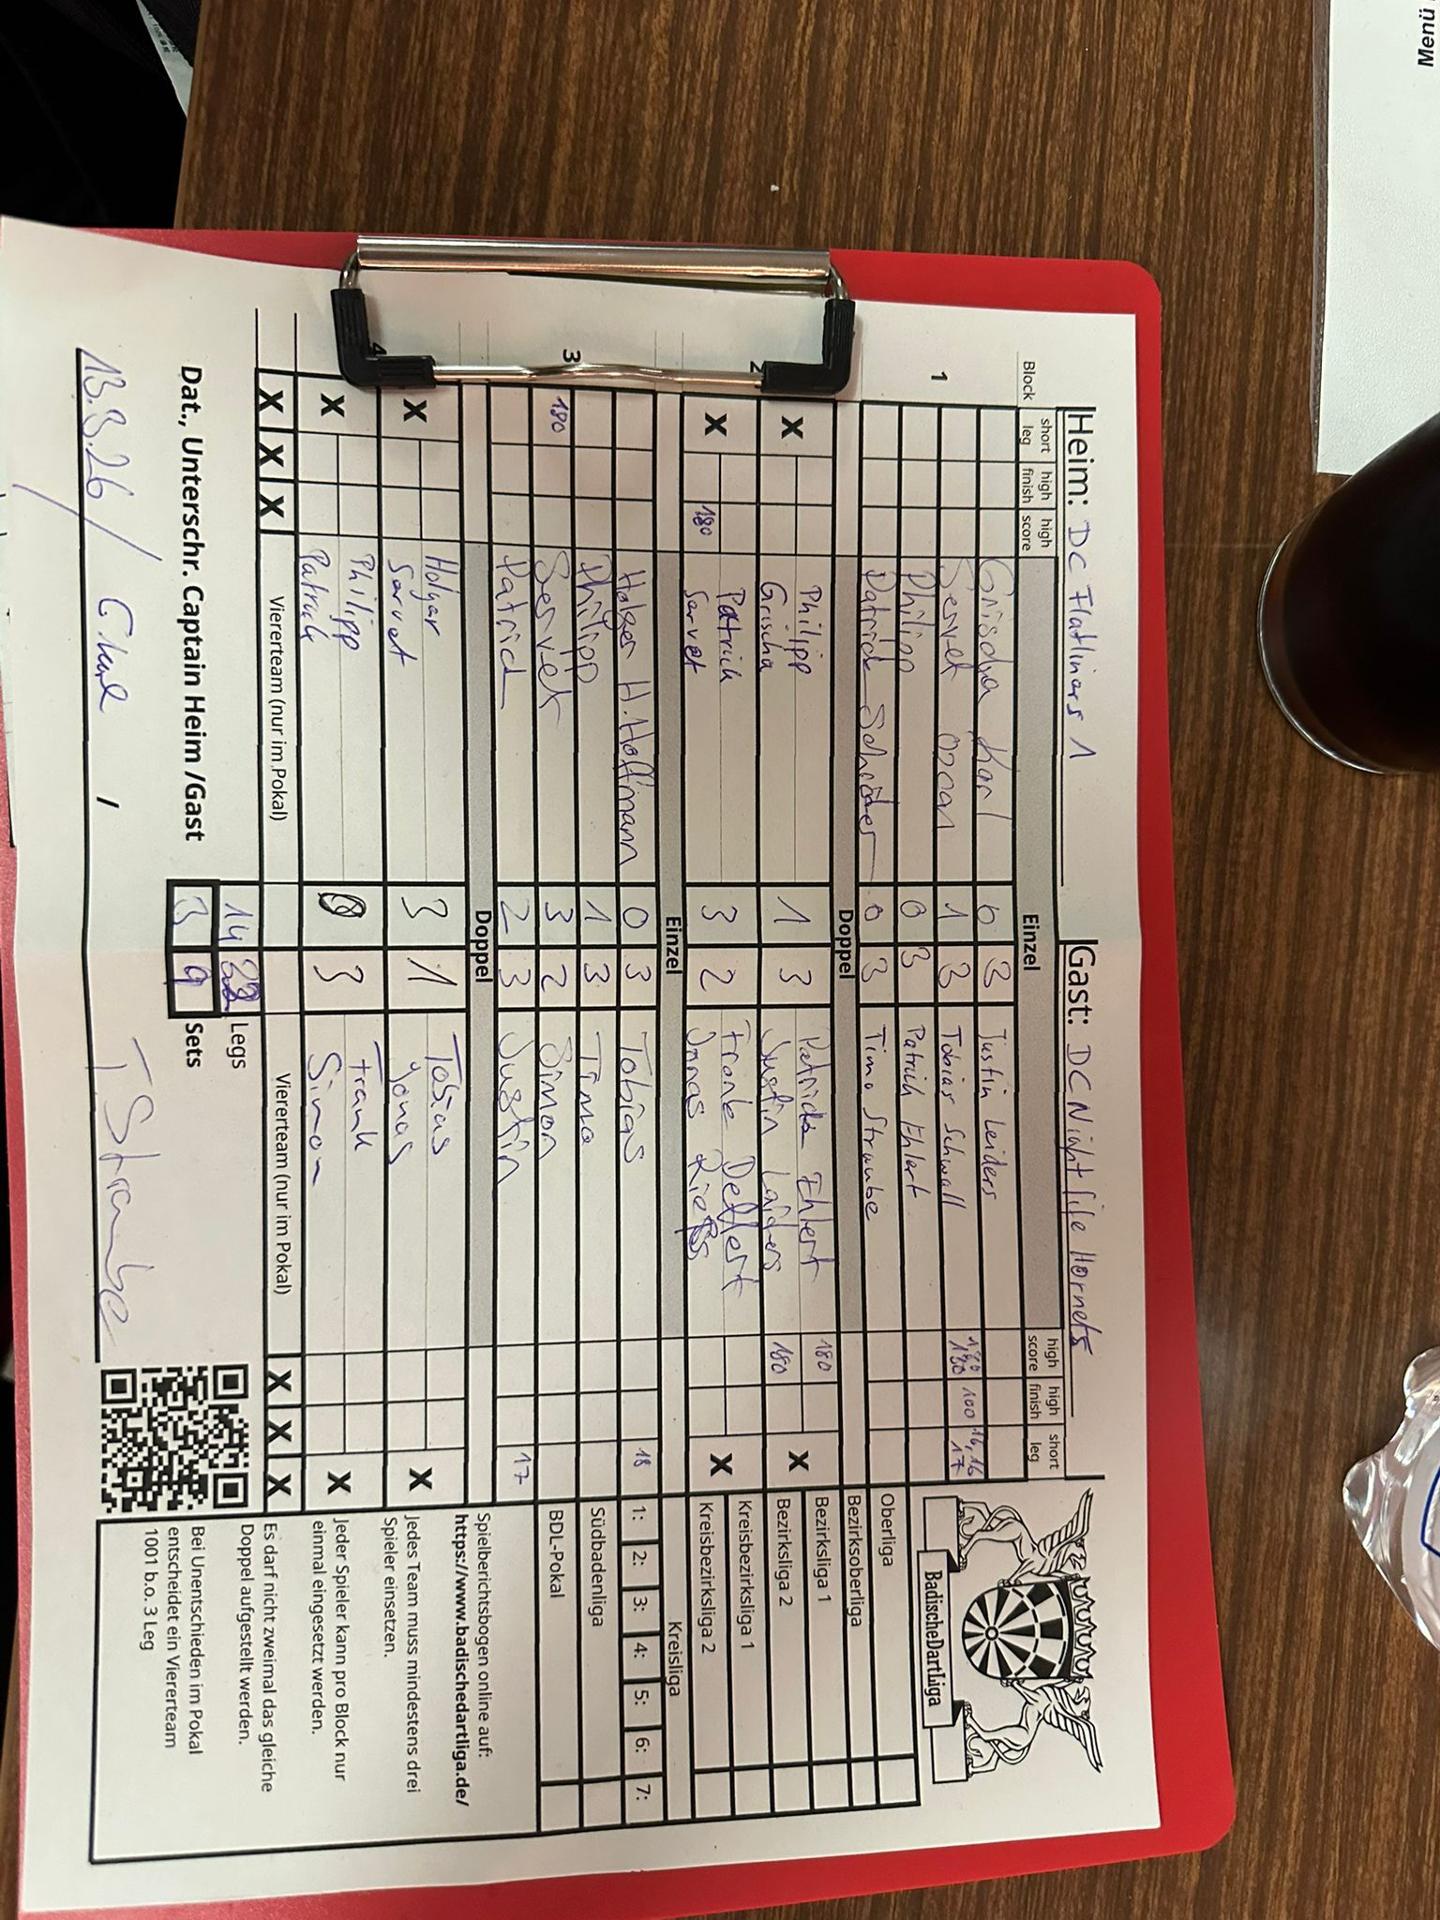 Menü
Heim: DC Flatliners 1
Gast: DC Night file Hornets
Block
short leg
high finish
high score
Einzel
high score
high finish
short leg
1
Grischa Karl 0 3 Justin Leiders
Servet Ozan 1 3 Tobias Schwall 180 180 100 16, 16 17
Philipp 0 3 Patrick Ehlert
Patrick 0 3 Timo Straube
Doppel
2
X Philipp 1 3 Patrick Ehlert 180 X
Grischa Justin Leiders 180
X Patrick 3 2 Frank Deffert X
180 Servet Jonas
Einzel
3
Holger H. Hoffmann 0 3 Tobias 18
Philipp 1 3 Timo
180 Servet 3 2 Simon
Patrick 2 3 Justin 17
Doppel
4
X Holger 3 1 Tobias X
Servet Jonas
X Philipp 0 3 Frank X
Patrick Simon
X X X Viererteam (nur im Pokal) Viererteam (nur im Pokal) X X X
14 Legs
3 9 Sets
Dat., Unterschr. Captain Heim /Gast
T. Straube
BadischeDartLiga
Oberliga
Bezirksoberliga
Bezirksliga 1
Bezirksliga 2
Kreisbezirksliga 1
Kreisbezirksliga 2
Kreisliga
1: 2: 3: 4: 5: 6: 7:
Südbadenliga
BDL-Pokal
Spielberichtsbogen online auf:
https://www.badischedartliga.de/
Jedes Team muss mindestens drei
Spieler einsetzen.
Jeder Spieler kann pro Block nur
einmal eingesetzt werden.
Es darf nicht zweimal das gleiche
Doppel aufgestellt werden.
Bei Unentschieden im Pokal
entscheidet ein Viererteam
1001 b.o. 3 Leg